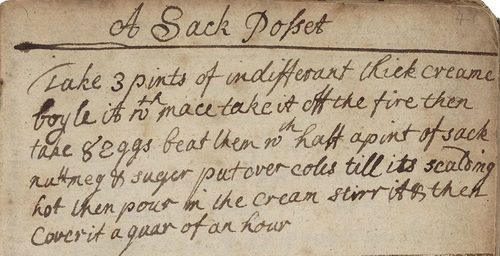 A Sack Posset
Take 3 pints of indifferant thick creame
boyle it wth mace take it off the fire then
take 8 Eggs beat them wth half a pint of sack
nuttmeg & suger put over coles till its scalding
hot then pour in the cream stirr it & then
Cover it a quar of an hour